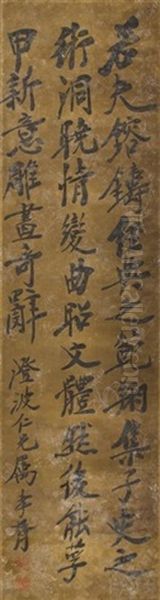 若夫鎔鑄經典之範翔集子史之
術洞曉情變曲昭文體然後能孚
甲新意雕畫奇辭 澄波仁兄屬 孝胥